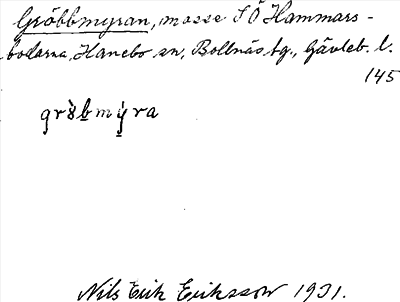 Gröbbmyran, mosse S Ö Hammars-
bodarna, Hanebo sn, Bollnäs tg., Gävleb. l.
145
grö̀bmýra
Nils Erik Eriksson 1931.